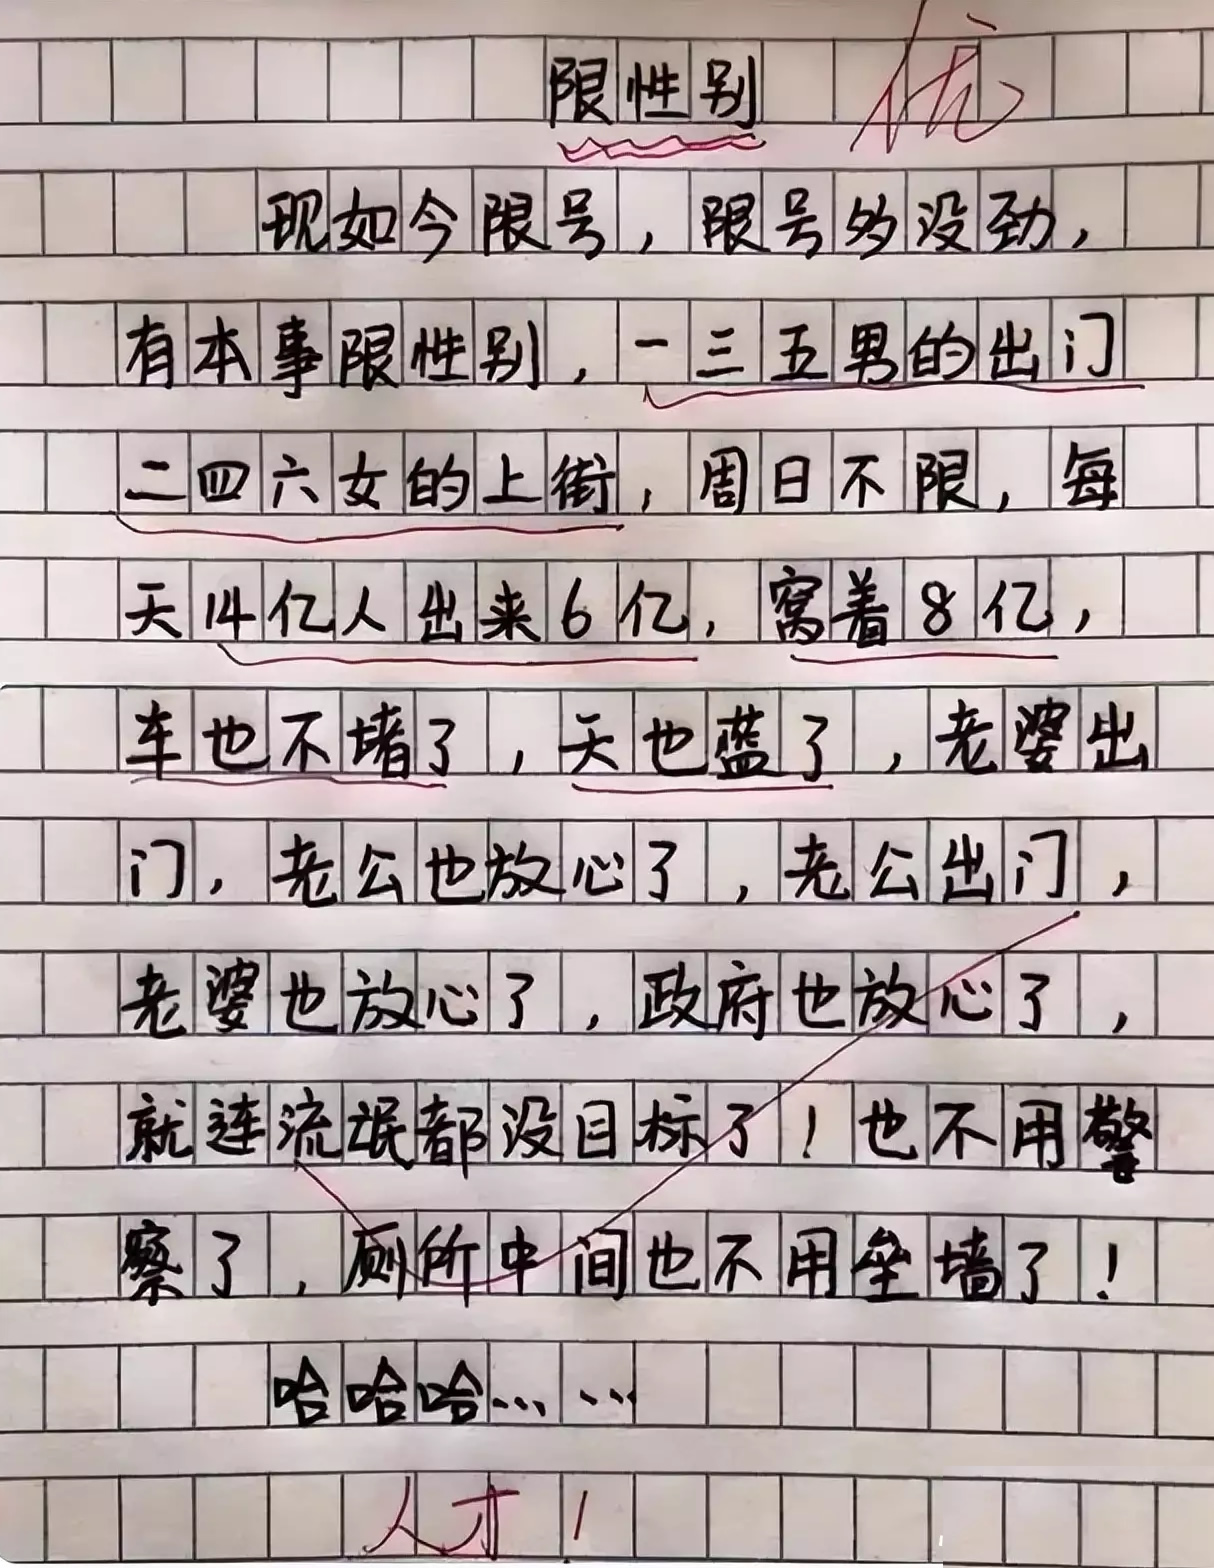 限性别 优
现如今限号，限号多没劲，
有本事限性别，一三五男的出门
二四六女的上街，周日不限，每
天14亿人出来6亿，窝着8亿，
车也不堵了，天也蓝了，老婆出
门，老公也放心了，老公出门，
老婆也放心了，政府也放心了，
就连流氓都没目标了！也不用警
察了，厕所中间也不用垒墙了！
哈哈哈……
人才！